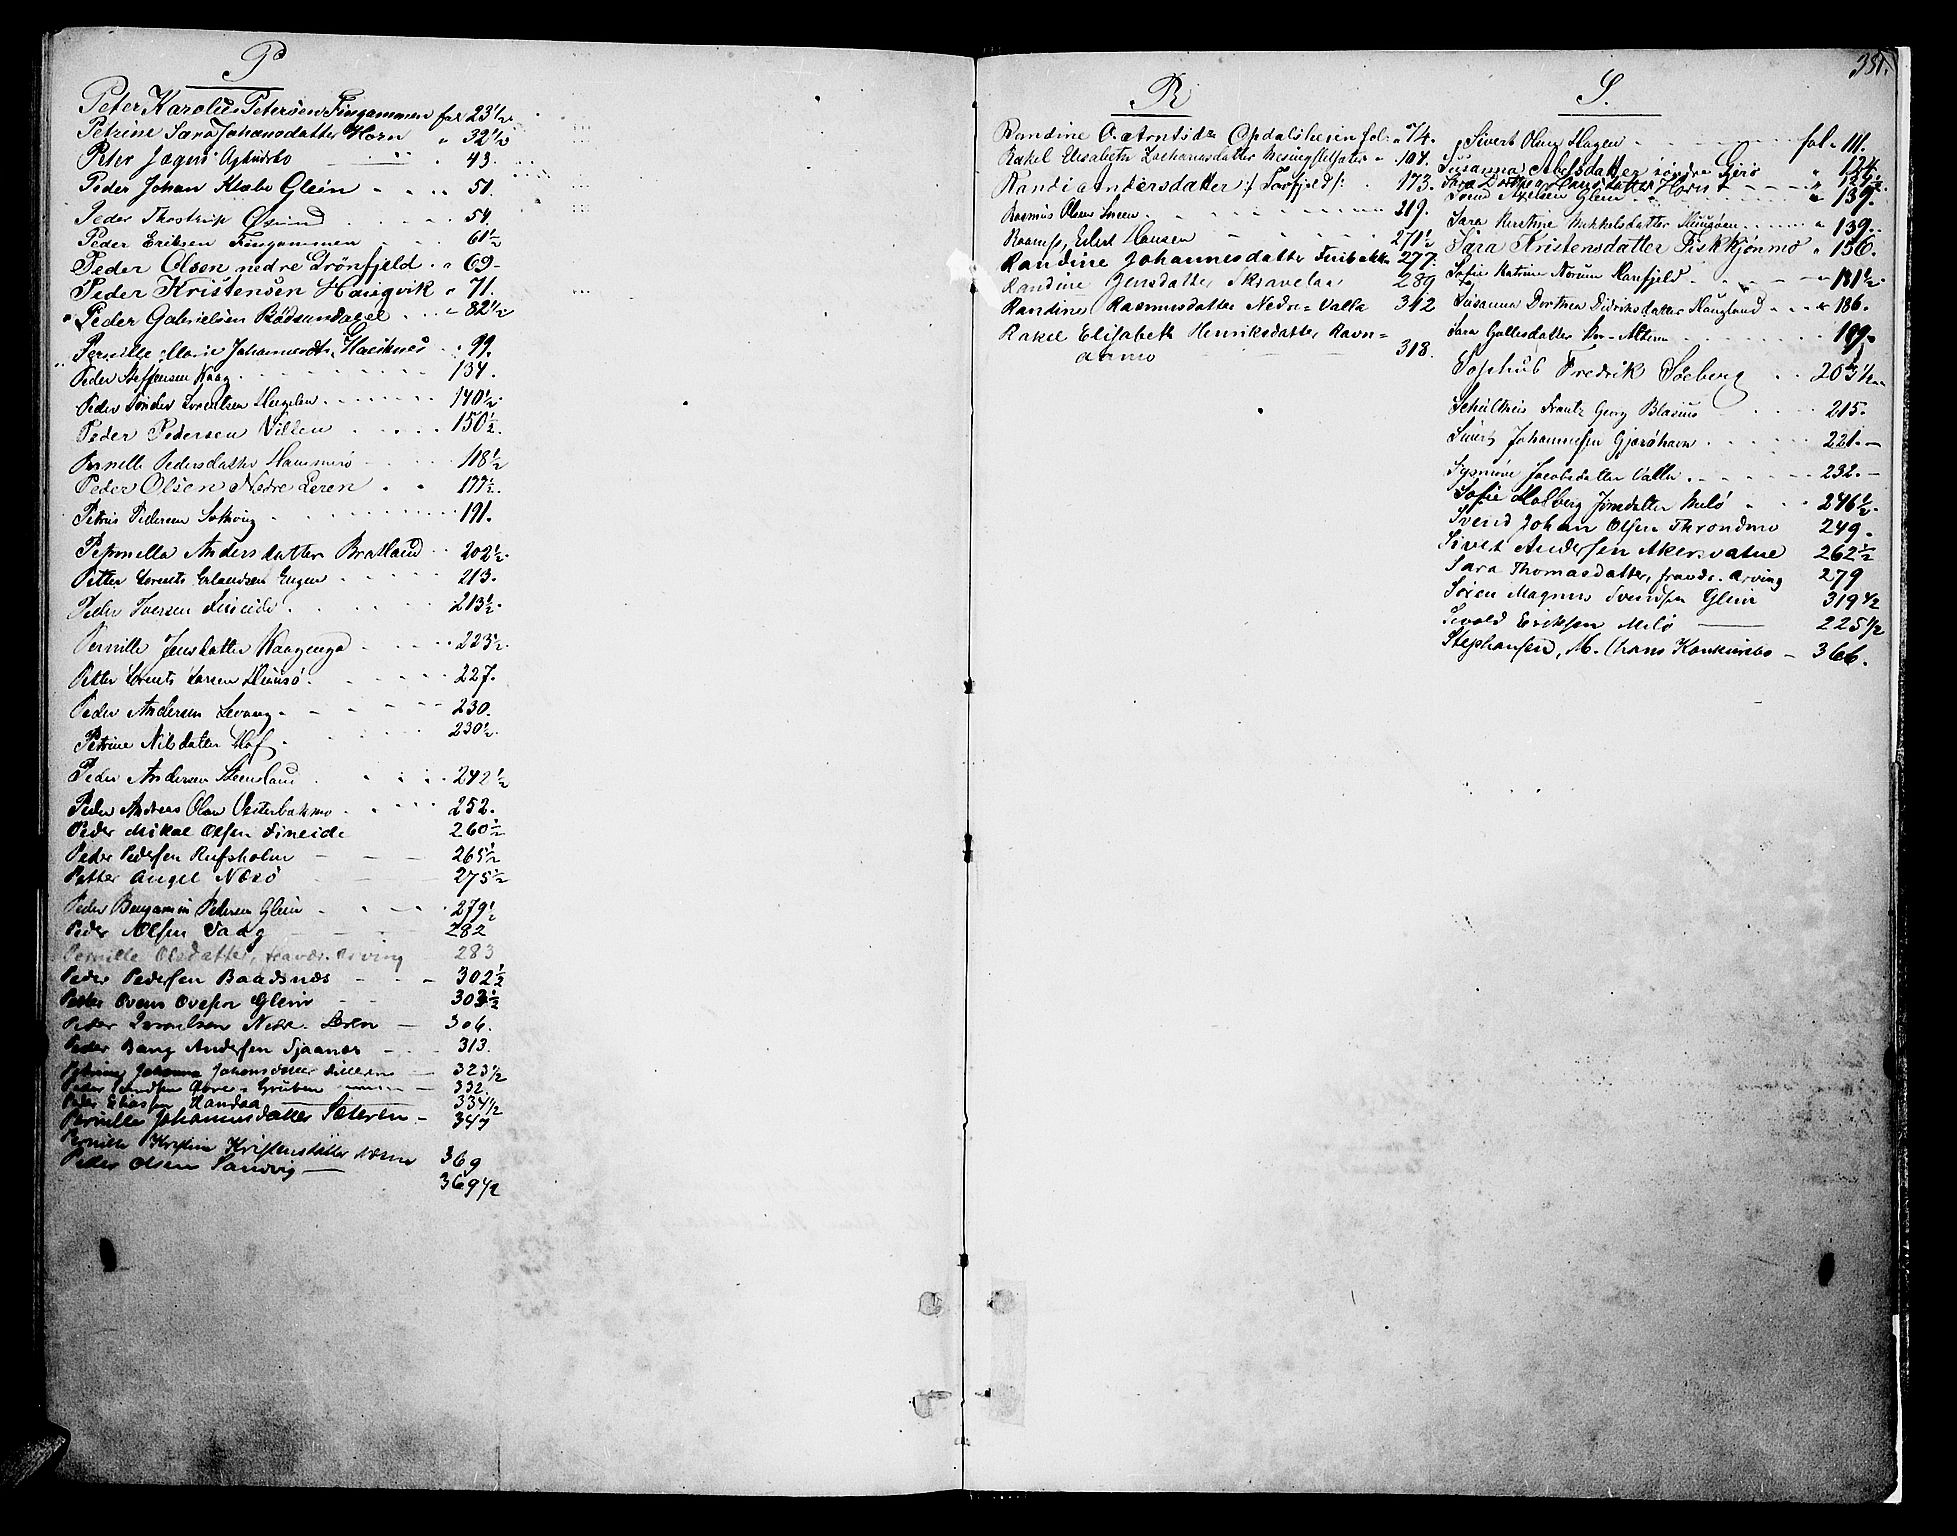 P
Peter Karolus Petersen Fingammen fol 23 1/2
Petrine Sara Johansdatter Horn " 32 1/2
Peter Jæger 43.
Peder Johan Klæbo Glein " 51.
Peder Thostrup Øvind 54
Peder Eriksen Fingammen 61 1/2
Peder Olsen nedre Drönfjeld " 69
Peder Kristensen Haugvik " 71.
Peder Gabrielsen Rødsundalel " 82 1/2
Pernille Marie Johannesdtr " 99.
Peder Steffensen Kaag 134.
Peder Sønder Lorentsen 140 1/2
Peder Pedersen Villen 150 1/2
Pernille Pedersdatter Hammerö 118 1/2
Peder Olsen Nedre Leren 177 1/2
Petrus Pedersen 191.
Pernella Andersdatter Bratland 202 1/2
Petter Lorents Erlandsen Engen 213.
Peder Iversen Fineide 213 1/2
Pernille Jensdatter Kaagenga 223 1/2
Petter Lorents Larsen Huusö 227.
Peder Andersen Levang 230.
Petrine Nilsdatter Hof 230 1/2
Peder Andersen Steenland 242 1/2
Peder Andreas Olsen 252.
Peder Mikal Olsen Fineide 260 1/2
Peder Pedersen Rufsholm 265 1/2
Petter Angel Næsö 275 1/2
Peder Benjamin Petersen Glein 279 1/2
Peder Olsen Vaag 282
Pernille Olsdatter, fravær. Arving 283
Peder Pedersen Baadsnæs 302 1/2
Peder Ovens Ovesen Glein 303 1/2
Peder Nedr. Leren 306.
Peder Bang Andersen Tjaanæs 313.
Johanna Johansdatter 323 1/2
Peder Øvre Gruben 332
Peder Eliassen Handaa 334 1/2
Pernille Johannesdatter Sæteren 347
Pernille Kristine Kristensdatter 369
Peder Olsen Sandvig 369 1/2
R
Randine O. Arntsdtr Opdalshesen fol. " 74.
Rakel Elisabeth Zachariasdatter " 104.
Randi Andersdatter /: Forfjeld :/ 173.
Rasmus Olsen 219.
Hansen 271 1/2
Randine Johannesdatter Finbakk 277.
Randine Jensdatter Skravelaa 289
Randine Rasmusdatter Nedre-Valla 312
Rakel Elisabeth Henriksdatter Ravn=
aamo 318.
S.
381.
Sivert Olsen Hagen fol " 111.
Susanna Abelsdatter söndre Gjerö " 124.
Sara Dorthea Hansdatter 132 1/2
Svend Nielsen Glein " 139.
Sara Kirstine Mikkelsdatter " 139.
Sara Kristensdatter Fiskkjönmo " 156.
Sofie Katrine Norum Ranfjeld " 181 1/2
Susanna Dorthea Didriksdatter Haugland " 186.
Sara Gallesdatter Alteren 189.
Sophus Fredrik Söeberg 203 1/2
Schultheis Frantz Georg Blasius 215.
Sivert Johannesen Gjeröhavn 221.
Synnöve Jacobsdatter Valla 232.
Sofie Holberg Jensdatter Milö 246 1/2
Svend Johan Olsen Throndmo 249.
Sivert Andersen Akersvatne 262 1/2
Sara Thomasdatter, fravær. Arving 279
Sören Magnus Svendsen Glein 319 1/2
Sivald Eriksen Milö 225 1/2
Stephansen, M. Chans Konkursbo 366.